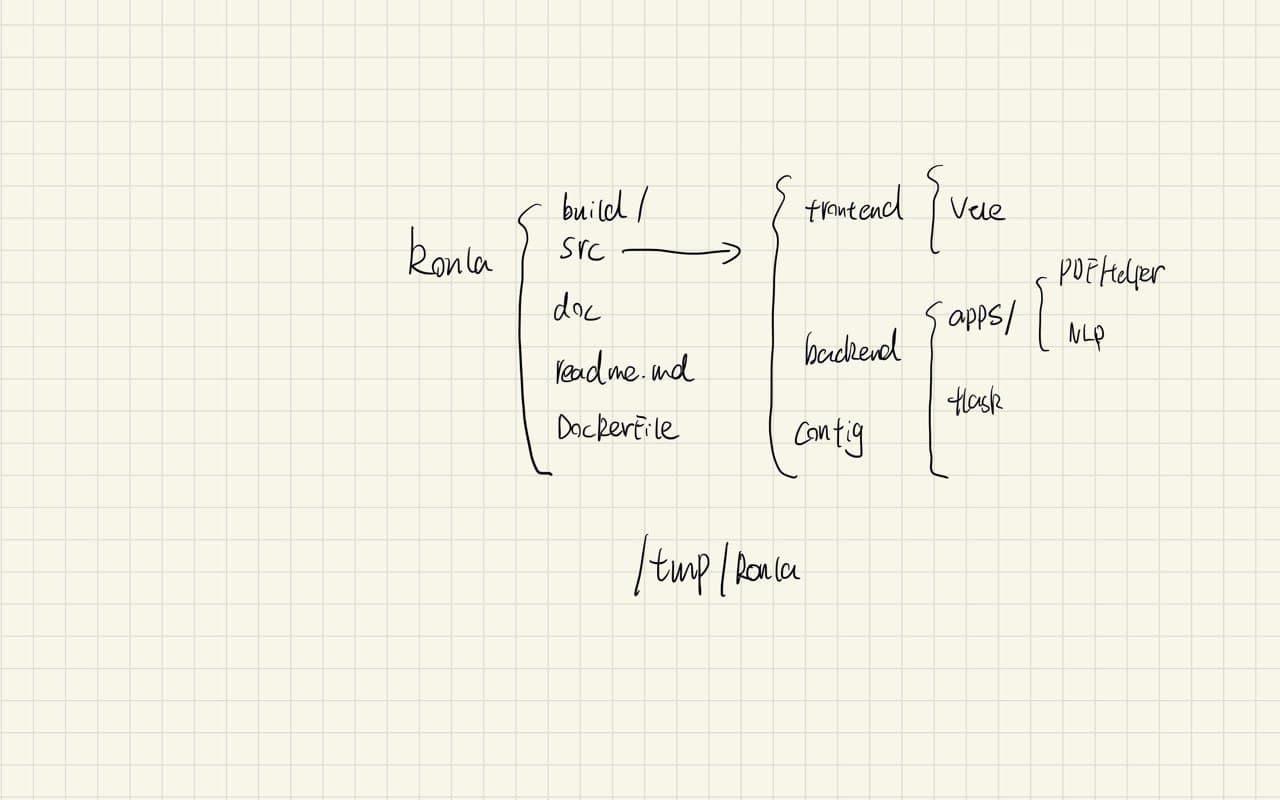 konla
build/
src
doc
readme.md
DockerFile
frontend
Vue
backend
apps/
PDFHelper
NLP
flask
config
/tmp/konla